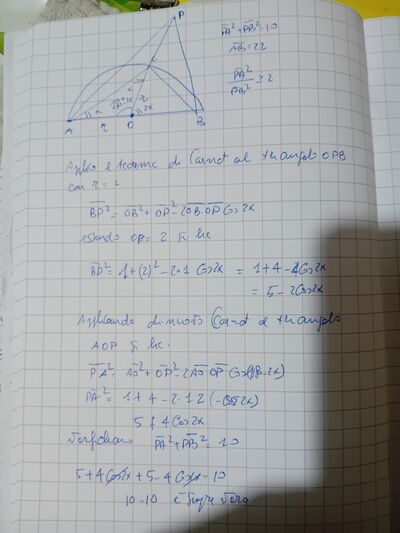 P
PA² + PB² = 10
AB = 2r
PA² / PB² ≥ 2
A r O B
r 2x
Applico il teorema di Carnot al triangolo OPB
con r = 1
BP² = OB² + OP² - 2OB OP Cos 2x
essendo OP = 2 si ha
BP² = 1 + (2)² - 2 • 1 Cos 2x = 1 + 4 - 4Cos 2x
= 5 - 2Cos 2x
Applicando di nuovo Carnot al triangolo
AOP si ha:
PA² = AO² + OP² - 2AO OP Cos(180-2x)
PA² = 1 + 4 - 2 · 1 2 (-Cos 2x)
5 + 4Cos 2x
Verifichiamo PA² + PB² = 10
5 + 4Cos2x + 5 - 4Cos2x = 10
10 = 10 è sempre vero.